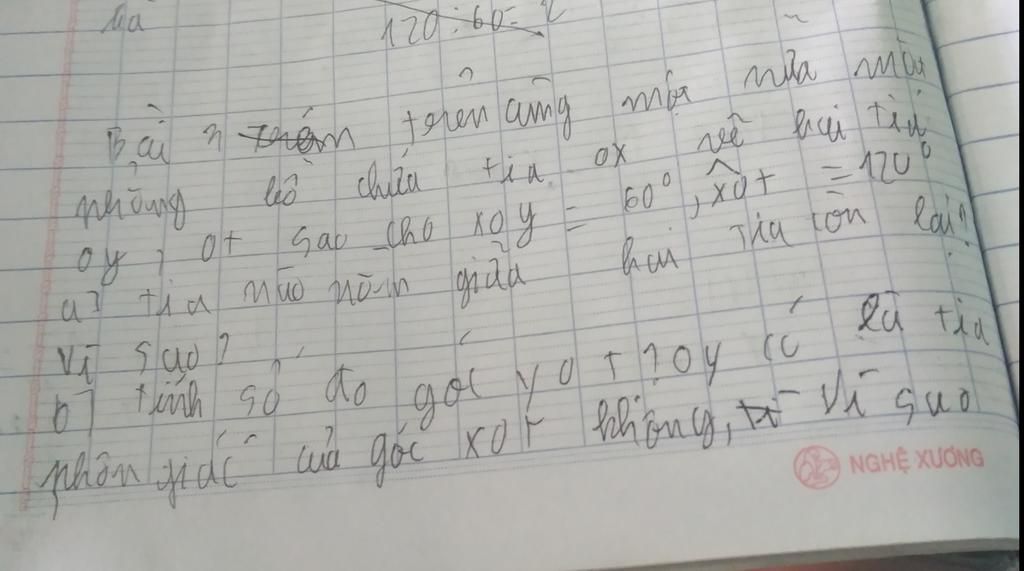 120 : 60 = 2
Bài 3 trên cùng một nửa mặt
phẳng bờ chứa tia ox vẽ hai tia
oy, ot sao cho xoy = 60°, xot = 120°
a) tia nào nằm giữa hai tia còn lại?
Vì sao?
b) tính số đo góc yot? oy có là tia
phân giác của góc xot không, Vì sao
NGHỆ XƯƠNG